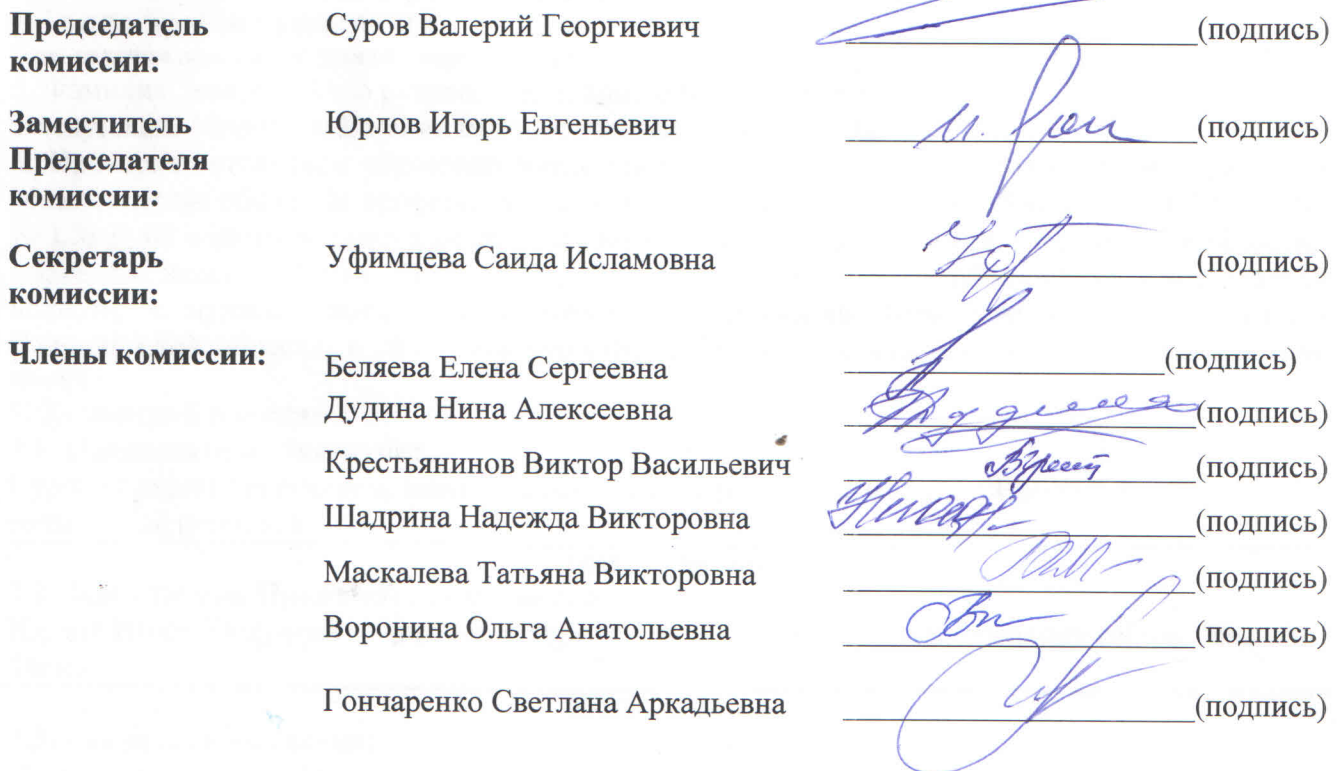 Председатель Суров Валерий Георгиевич (подпись)
комиссии:
Заместитель Юрлов Игорь Евгеньевич (подпись)
Председателя
комиссии:
Секретарь Уфимцева Саида Исламовна (подпись)
комиссии:
Члены комиссии: Беляева Елена Сергеевна (подпись)
Дудина Нина Алексеевна (подпись)
Крестьянинов Виктор Васильевич (подпись)
Шадрина Надежда Викторовна (подпись)
Маскалева Татьяна Викторовна (подпись)
Воронина Ольга Анатольевна (подпись)
Гончаренко Светлана Аркадьевна (подпись)